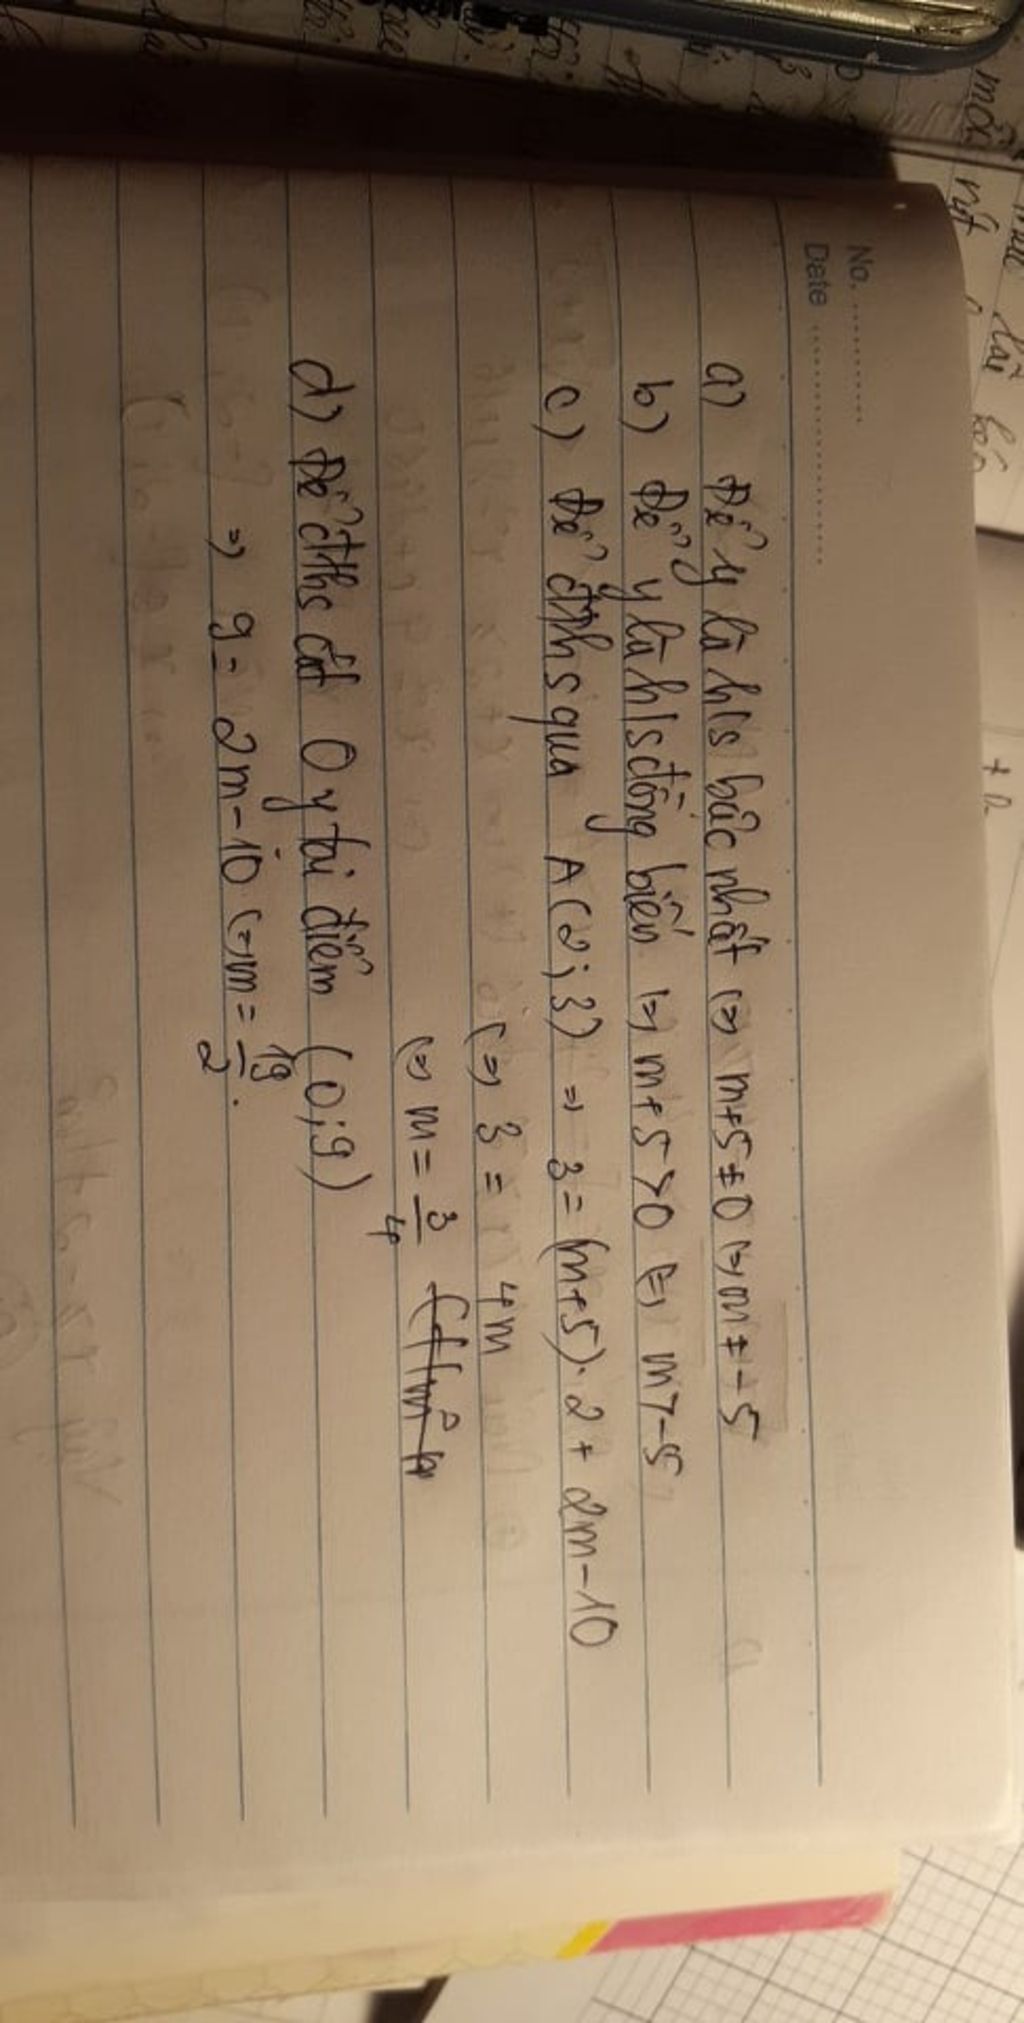 No. ............
Date ........................
a) Để y là h/s bậc nhất (=) m+5≠0 (=) m≠-5
b) Để y là h/s đồng biến (=) m+5>0 (=) m>-5
c) Để đths qua A(2;3) => 3=(m+5).2+2m-10
(=) 3 = 4m
(=) m = 3/4
d) Để đths cắt Oy tại điểm (0;9)
=> 9= 2m-10 (=) m= 19/2.